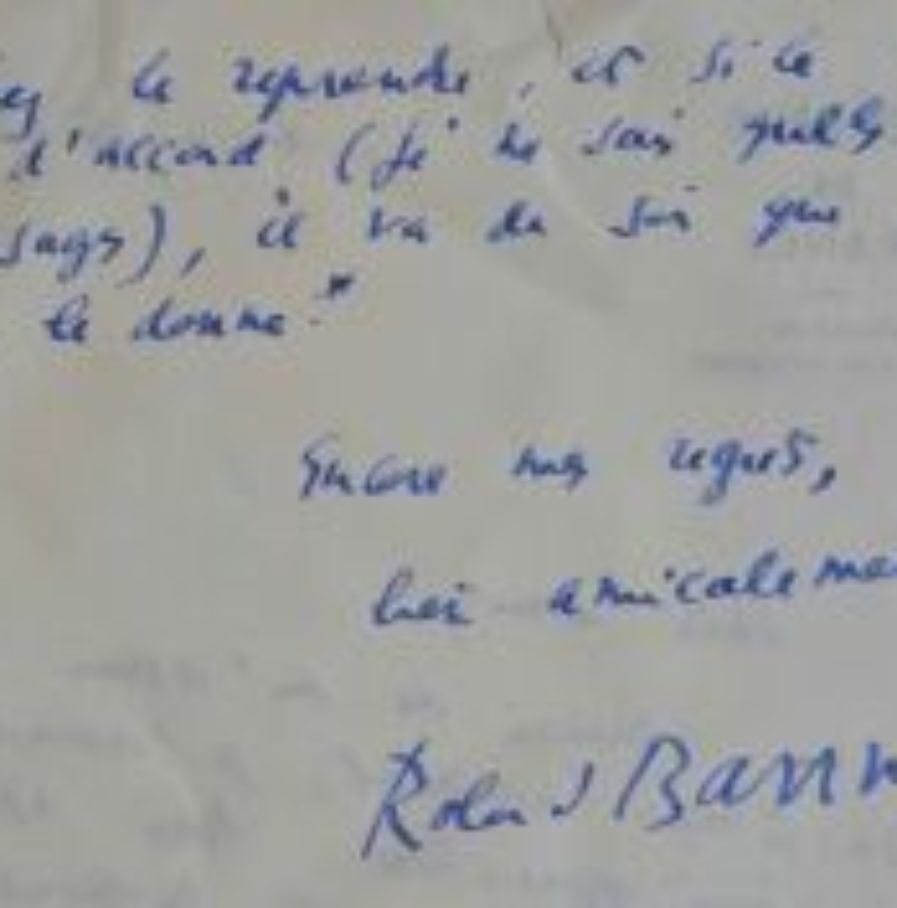 le reprendre, et si le
d'accord (je ne sais quels
sages), il va de soi que
te donne.*
Encore mes regrets,
bien amicalemen
Roland Barth